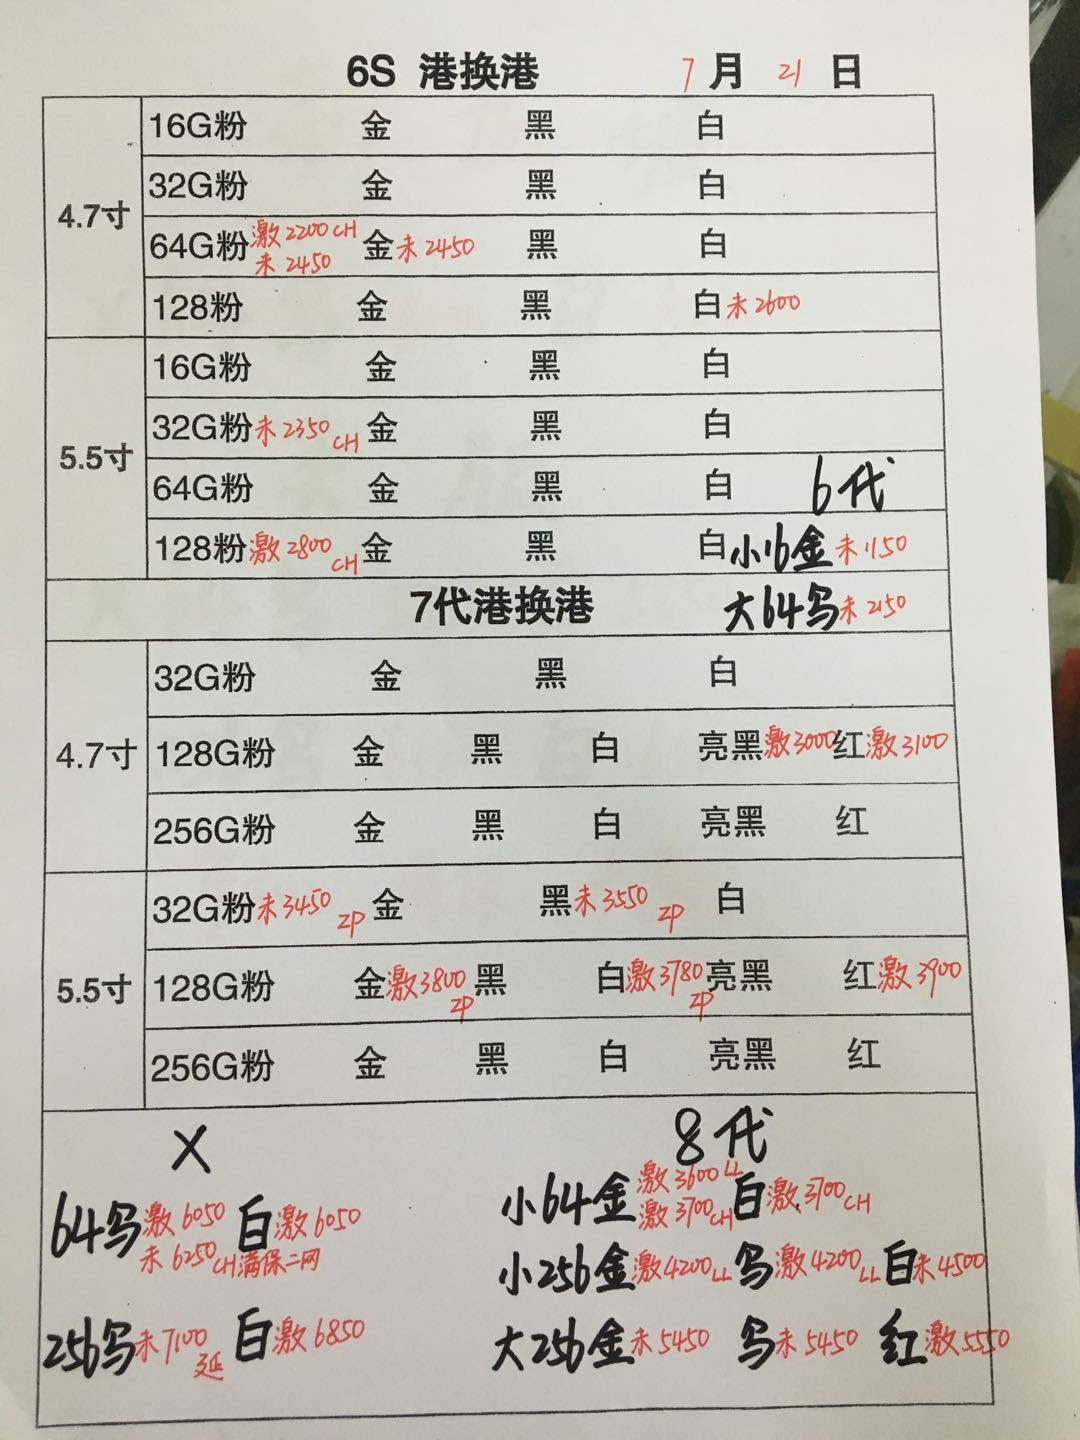 6S 港换港 7月21日
4.7寸
16G粉 金 黑 白
32G粉 金 黑 白
64G粉 激2200CH 未2450 金 未2450 黑 白
128粉 金 黑 白 未2600
5.5寸
16G粉 金 黑 白
32G粉 未2350 CH 金 黑 白
64G粉 金 黑 白 6代
128粉 激2800 CH 金 黑 白 小16金 未1150
7代港换港 大64乌 未2150
4.7寸
32G粉 金 黑 白
128G粉 金 黑 白 亮黑 激3000 红 激3100
256G粉 金 黑 白 亮黑 红
5.5寸
32G粉 未3450 ZP 金 黑 未3550 ZP 白
128G粉 金 激3800 ZP 黑 白 激3780 ZP 亮黑 红 激3900
256G粉 金 黑 白 亮黑 红
X
64乌 激6050 未6250CH满保二网 白 激6050
256乌 未7100 延 白 激6850
8代
小64金 激3600LL 激3700CH 白 激3700CH
小256金 激4200LL 乌 激4200LL 白 未4500
大256金 未5450 乌 未5450 红 激5550